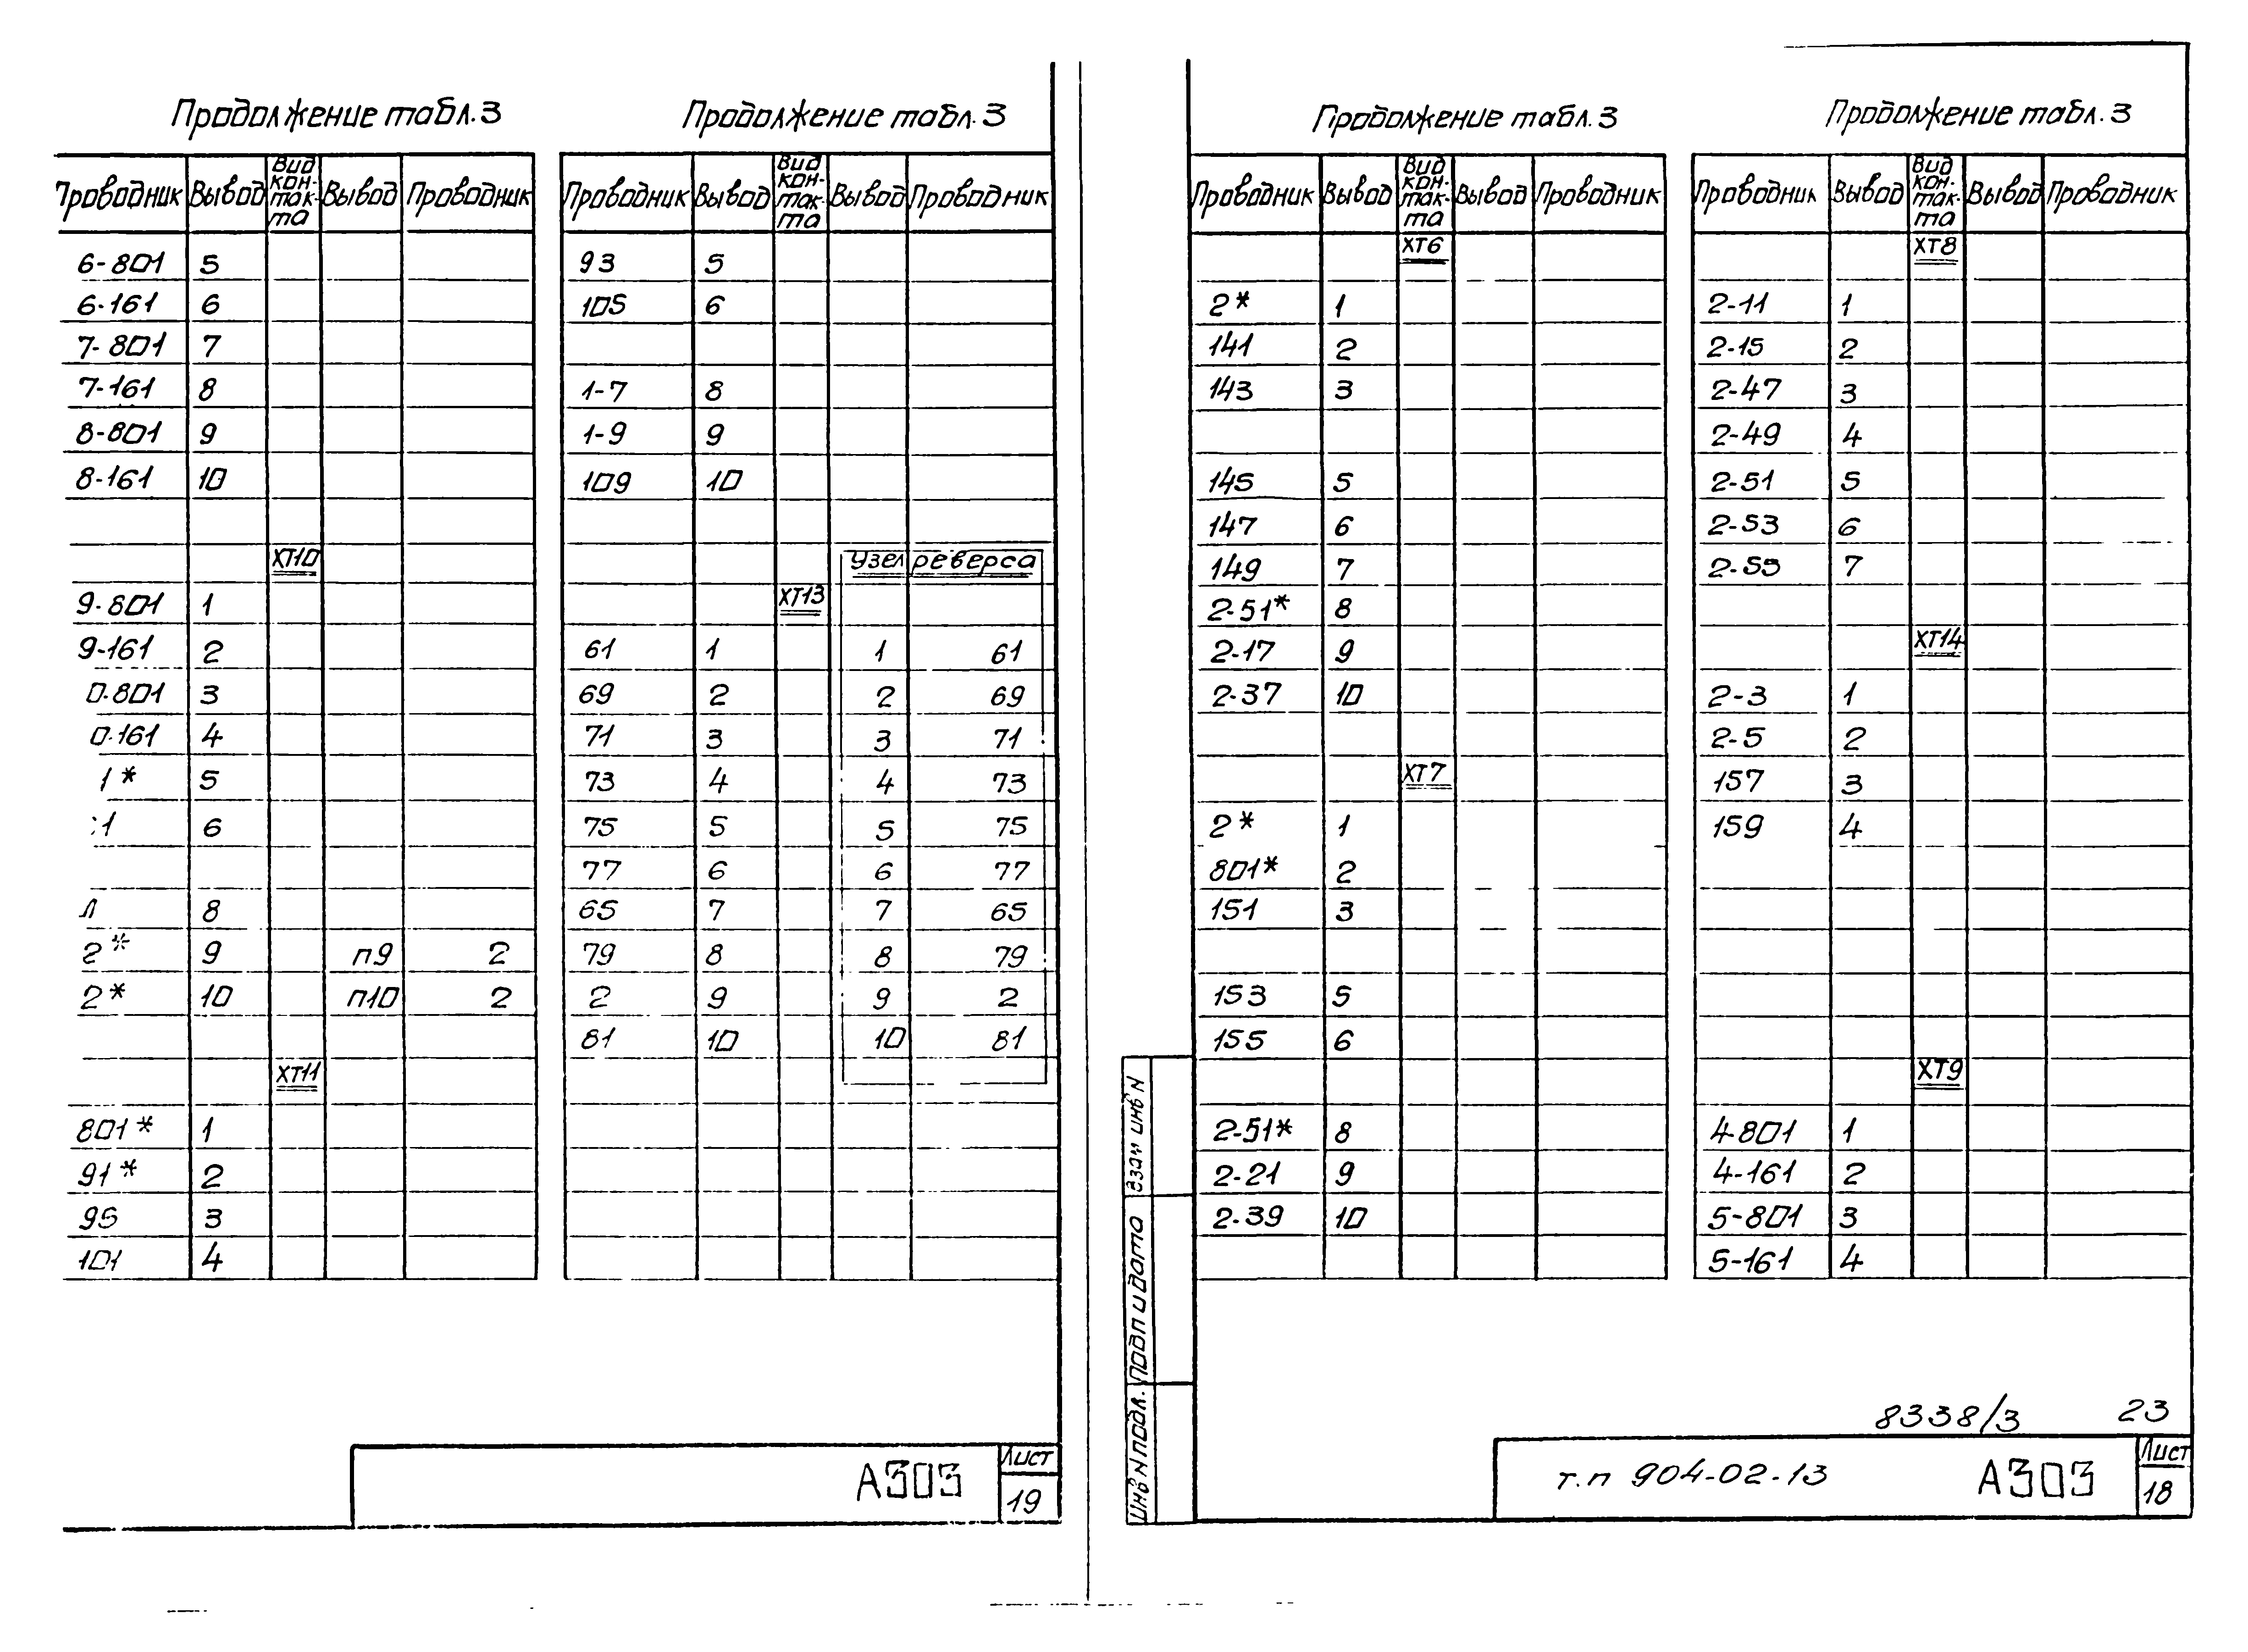 Продолжение табл.3
Проводник Вывод Вид кон- так- та Вывод Проводник
6-801 5
6-161 6
7-801 7
7-161 8
8-801 9
8-161 10
ХТ10
9-801 1
9-161 2
0-801 3
0-161 4
1* 5
1 6
Л 8
2* 9 п9 2
2* 10 п10 2
ХТ11
801* 1
91* 2
95 3
101 4
Продолжение табл.3
Проводник Вывод Вид кон- так- та Вывод Проводник
93 5
105 6
1-7 8
1-9 9
109 10
Узел реверса
ХТ13
61 1 1 61
69 2 2 69
71 3 3 71
73 4 4 73
75 5 5 75
77 6 6 77
65 7 7 65
79 8 8 79
2 9 9 2
81 10 10 81
А303
Лист
19
Продолжение табл.3
Проводник Вывод Вид кон- так- та Вывод Проводник
ХТ6
2* 1
141 2
143 3
145 5
147 6
149 7
2-51* 8
2-17 9
2-37 10
ХТ7
2* 1
801* 2
151 3
153 5
155 6
2-51* 8
2-21 9
2-39 10
Продолжение табл.3
Проводник Вывод Вид кон- так- та Вывод Проводник
ХТ8
2-11 1
2-15 2
2-47 3
2-49 4
2-51 5
2-53 6
2-55 7
ХТ14
2-3 1
2-5 2
157 3
159 4
ХТ9
4-801 1
4-161 2
5-801 3
5-161 4
Взам инв N
Подп и дата
Инв N подл.
8338/3 23
т.п 904-02-13 А303
Лист
18